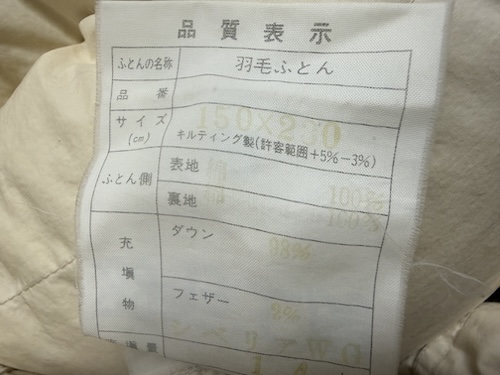 品質表示
ふとんの名称 羽毛ふとん
品番
サイズ(cm) 150×2 0
キルティング製(許容範囲+5%-3%)
ふとん側 表地 綿 100%
裏地 綿 100%
充塡物 ダウン 98%
フェザー 2%
シベリアWG
充塡量